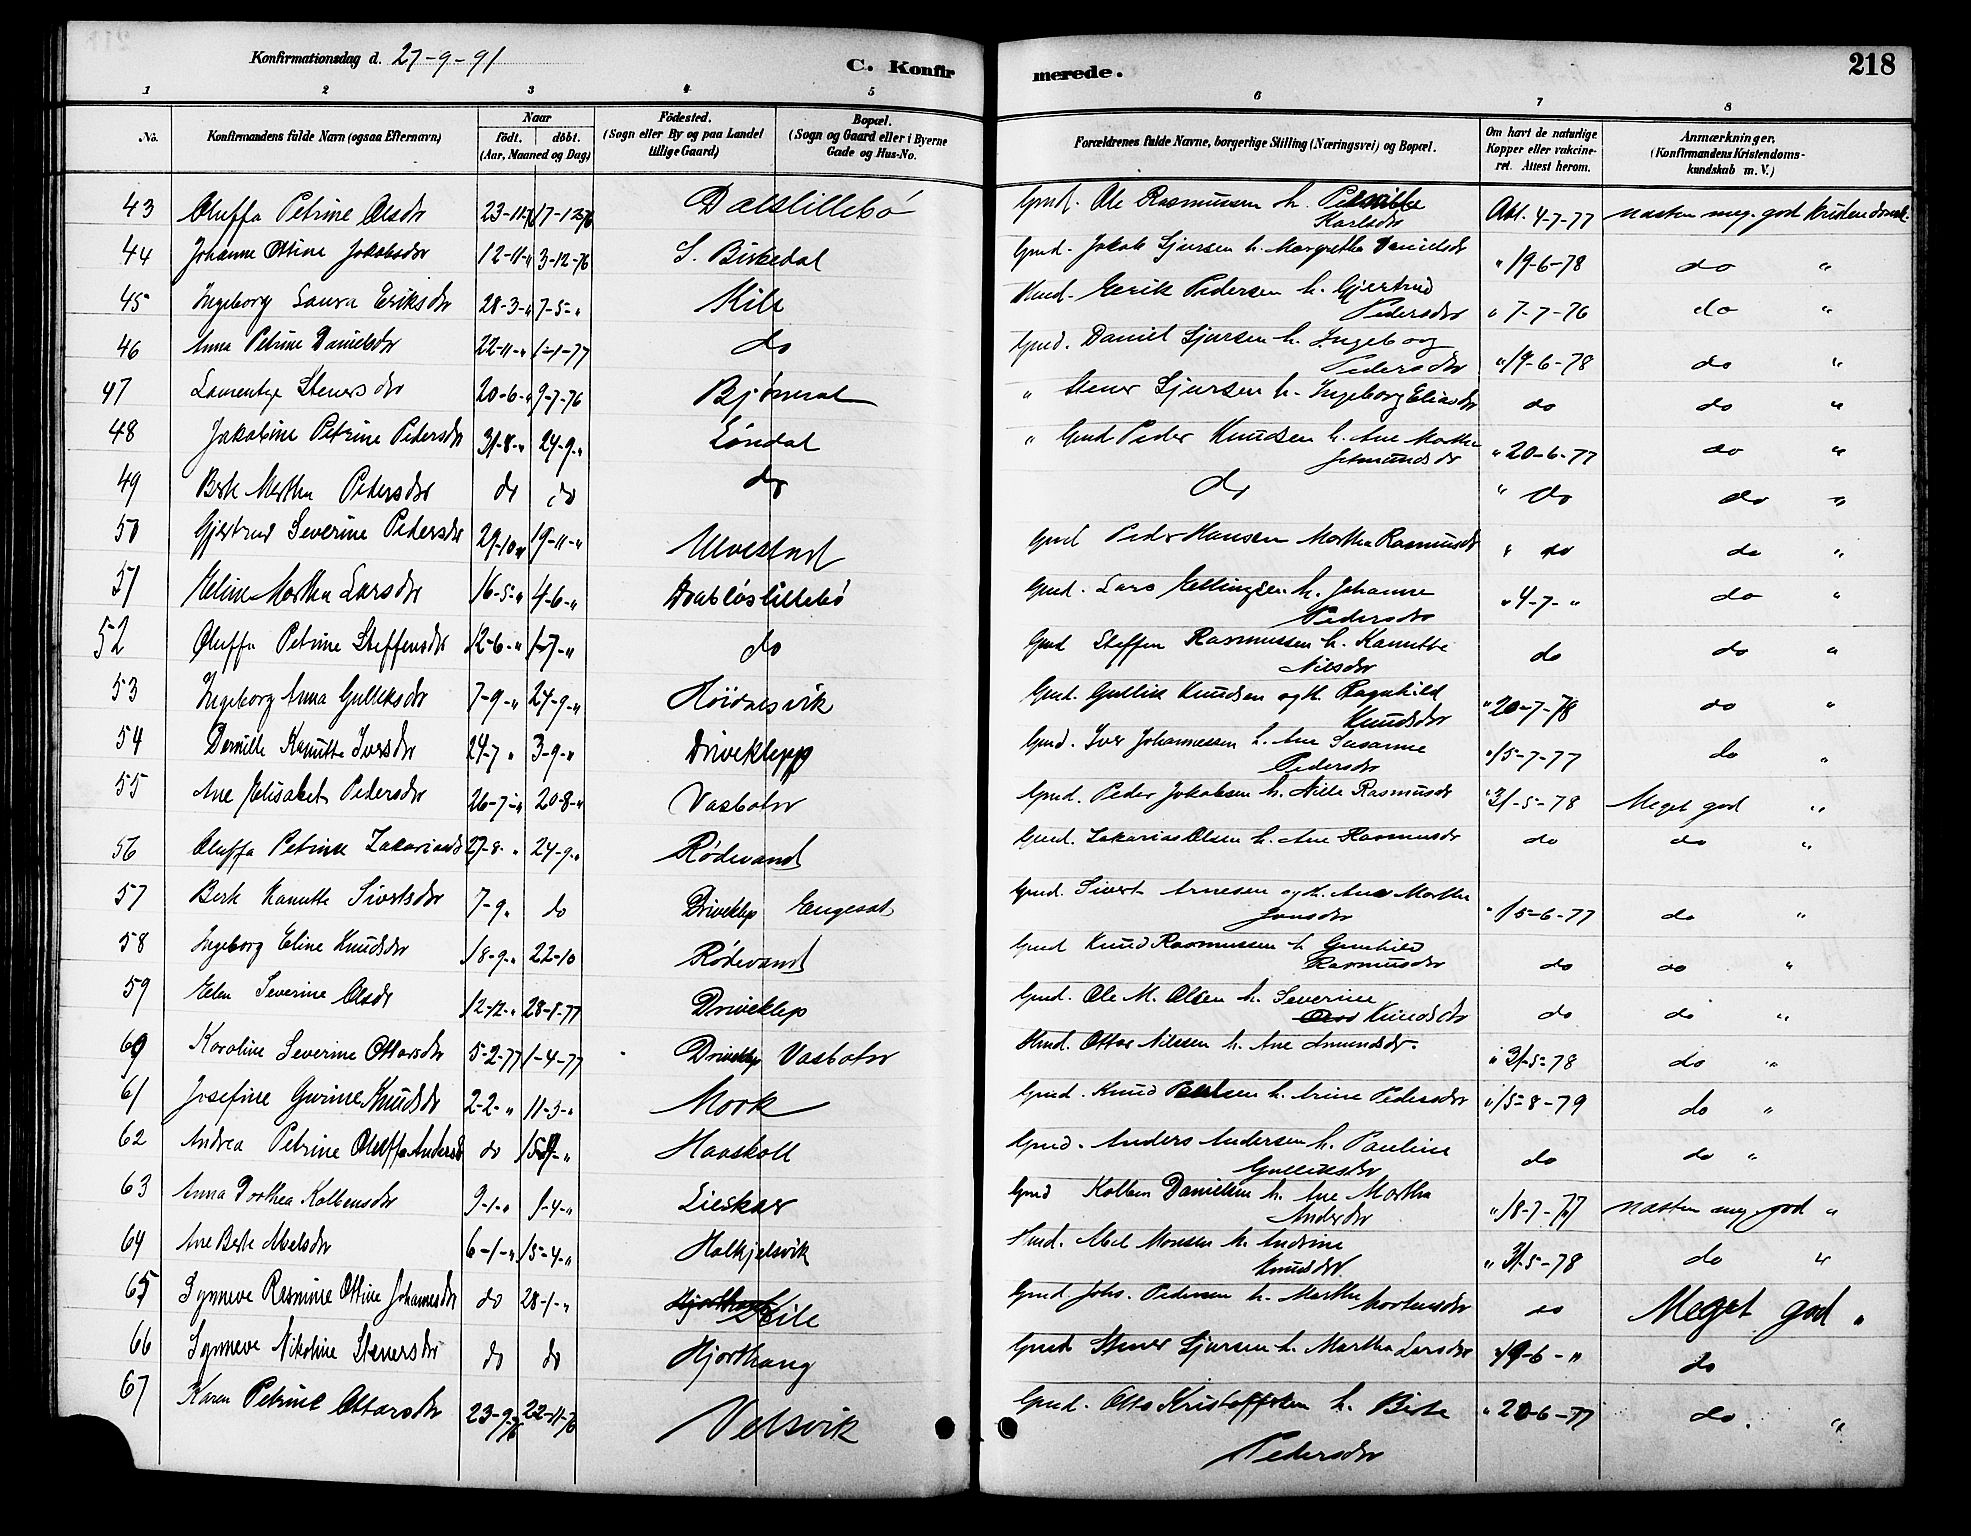 218
Konfirmationsdag d. 27-9-91
C. Konfirmerede.
1 2 3 4 5 6 7 8
No.
Konfirmandens fulde Navn (ogsaa Efternavn)
Naar
födt. döbt.
(Aar, Maaned og Dag)
Födested.
(Sogn eller By og paa Landet tillige Gaard)
Bopæl.
(Sogn og Gaard eller i Byerne Gade og Hus-No.
Forældrenes fulde Navne, borgerlige Stilling (Næringsvei) og Bopæl.
Om havt de naturlige Kopper eller vakcineret. Attest herom.
Anmærkninger.
(Konfirmandens Kristendomskundskab m. V.)
43 Oluffa Petrine Olsdr 23-11-76 17-12-76 Dalslillebö Gmd. Ole Rasmussen h. Pernille Karlsdr Att. 4-7-77 næsten meg. god Kristendomsk.
44 Johanne Otine Jakobsdr 12-11-" 3-12-76 S. Birkedal Gmd. Jakob Sjursen h. Margrethe Danielsdr " 19-6-78 do "
45 Ingeborg Laura Eriksdr 28-3-" 7-5-" Kile Hmd. Eerik Pedersen h. Gjertrud Pedersdr " 7-7-76 do "
46 Anna Petrine Danielsdr 22-11-" 1-1-77 do Gmd. Daniel Sjursen h. Ingeborg Pedersdr " 19-6-78 do "
47 Lamentze Stenersdr 20-6-" 9-7-76 Bjørneset " Stener Sjursen h. Ingeborg Eliasdr do do "
48 Jakobine Petrine Pedersdr 31-8-" 24-9-" Löndal " Gmd Peder Knudsen h. Ane Marthe Jetmundsdr " 20-6-77 do "
49 Berte Marthea Pedersdr do do do do " do do "
50 Gjertrud Severine Pedersdr 29-10-" 19-11-" Ulvestad Gmd Peder Hansen Martha Rasmusdr " do do "
51 Eline Martha Larsdr 16-5-" 4-6-" Drabløslillebö Gmd. Lars Ellingsen h. Johanne Pedersdr " 4-7-" do "
52 Oluffa Petrine Steffensdr 12-6-" 1-7-" do Gmd Steffen Rasmussen h. Kanutte Nilsdr do do "
53 Ingeborg Anna Gulleksdr 7-9-" 24-9-" Höidalsvik Gmd. Gullik Knudsen og h. Ragnhild Knudsdr " 20-7-78 do "
54 Pernille Kanutte Iversdr 24-7 " 3-9-" Driveklepp Gmd. Iver Johannessen h. Ane Susanne Pedersdr " 15-7-77 do "
55 Ane Elisabet Pedersdr 26-7-" 20-8-" Vasbotn Gmd. Peder Jakobsen h. Nille Rasmusdr " 31-5-78 Meget god "
56 Oluffa Petrine Zakariasd 27-8- " 24-9-" Rödevand Gmd. Zakarias Olsen h. Ane Rasmusdr do do "
57 Berte Kanutte Sivertsdr 7-9" do Driveklep Engeset Gmd. Sivert Arnesen og h. Ane Marthe Jonsdr " 15-6-77 do "
58 Ingeborg Eline Knudsdr 18-9-" 22-10 Rödevand Gmd Knud Rasmussen h Gunhild Rasmusdr do do "
59 Elen Severine Olsdr 12-12-" 28-1-77 Driveklep Gmd. Ole M. Olsen h. Severine Knudsdr do do "
60 Karoline Severine Ottarsdr 5-2-77 1-4-77 Driveklep Vasbotn Hmd. Ottar Nilssen h. Ane Amundsdr " 31-5-78 do "
61 Josefine Gurine Knudsdr 2-2- " 11-3-" Mork Gmd. Knud Paulsen h. Arine Pedersdr " 15-8-79 do "
62 Andrea Petrine Oluffa Andersd do Haaskoll Gmd. Anders Andersen h. Pauline Gulliksdr do do "
63 Anna Dorthea Kolbensdr 9-1-" 1-4-" Lieskar Gmd Kolben Danielsen h. Ane Martha Andersdr " 18-7-77 næsten meg. god "
64 Ane Berte Abelsdr 6-1-" 15-4-" Halkjelsvik Hmd. Abel Monsen h. Andrine Knudsdr " 31-5-78 do "
65 Synneve Rasmine Ottine Johannesdr do 28-1-" Kile Gmd Johs. Pedersen h. Marthe Mortensdr do Meget god "
66 Synneve Nikoline Stenersdr do do Hjorthaug Gmd Stener Sjursen h. Martha Larsdr " 19-6-" do
67 Karen Petrine Ottarsdr 23-9-76 22-11-76 Velsvik Gmd. Otto Kristoffersen h. Birte Pedersdr " 20-6-77 do. "